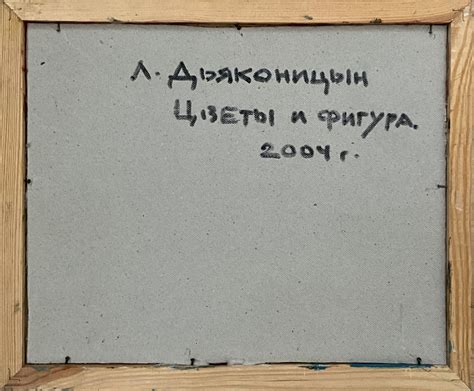 Л. Дьяконицын
Цветы и фигура.
2004 г.